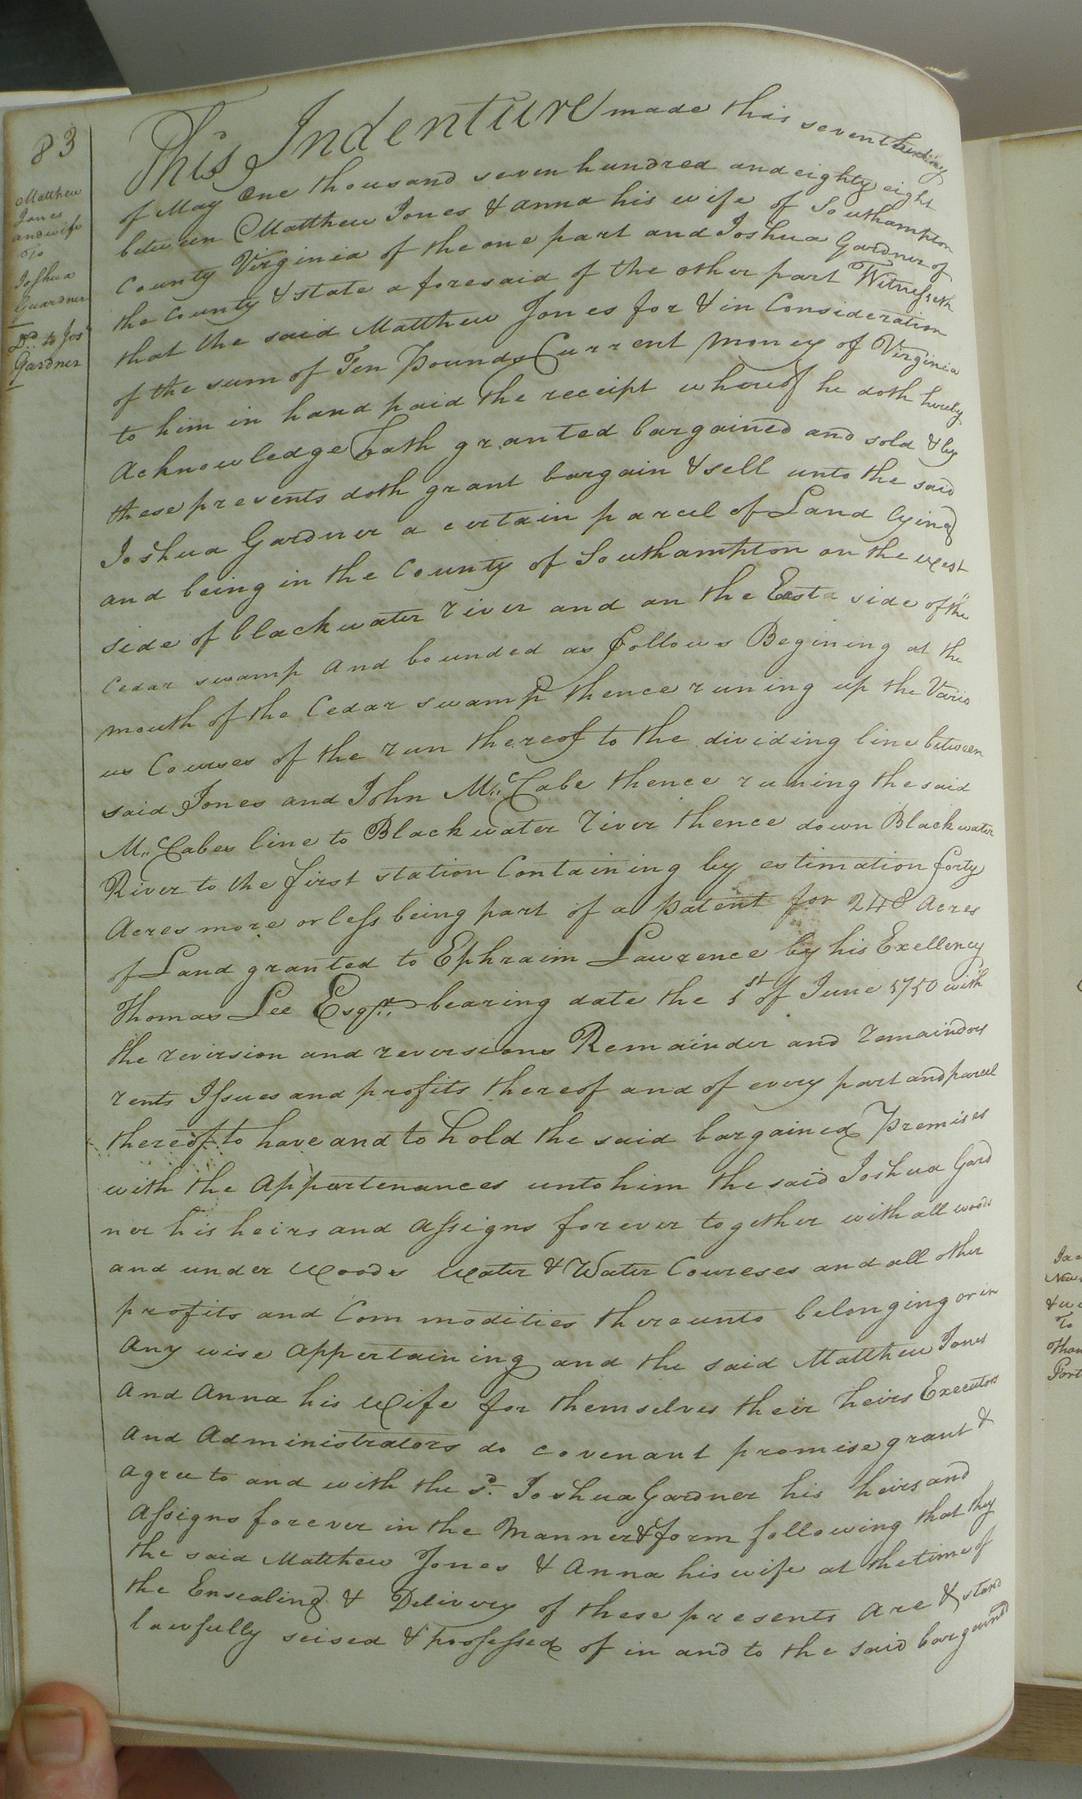 83
Matthew
Jones
and wife
To
Joshua
Guardner
Dd. to Jos.
Gardner
This Indenture made this seventh day
of May One thousand seven hundred and eighty eight
between Matthew Jones & Anna his wife of Southampton
County Virginia of the one part and Joshua Gardner of
the County & state aforesaid of the other part Witnesseth
that the said Matthew Jones for & in Consideration
of the sum of Ten Pounds Current money of Virginia
to him in hand paid the receipt whereof he doth hereby
Acknowledge hath granted bargained and sold & by
these presents doth grant bargain & sell unto the said
Joshua Gardner a certain parcel of Land lying
and being in the County of Southampton on the west
side of blackwater river and on the East side of the
Cedar swamp And bounded as follows Begining at the
mouth of the Cedar swamp thence runing up the Vario
us Courses of the run thereof to the dividing line between
said Jones and John Mc. Cabe thence runing the said
Mc. Cabes line to Blackwater river thence down Blackwater
River to the first station Containing by estimation forty
Acres more or less being part of a Patent for 248 Acres
of Land granted to Ephraim Lawrence by his Exellency
Thomas Lee Esqr. bearing date the 1st of June 1750 with
the revirsion and reversions Remainder and remaindors
rents Issues and profits thereof and of every part and parcel
thereof to have and to hold the said bargained Premises
with the Appartenances unto him the said Joshua Gard
ner his heirs and Assigns forever together with all woods
and under woods water & Water Coureses and all other
profits and Commodities thereunto belonging or in
Any wise Appertaining and the said Matthew Jones
And Anna his wife for themselves their heirs Executors
And Administrators do covenant promise grant &
agree to and with the sd. Joshua Gardner his heirs and
Assigns forever in the Manner & form following that they
the said Matthew Jones & Anna his wife at the time of
the Ensealing & Delivery of these presents Are & stand
lawfully seised & possessed of in and to the said bargained
To